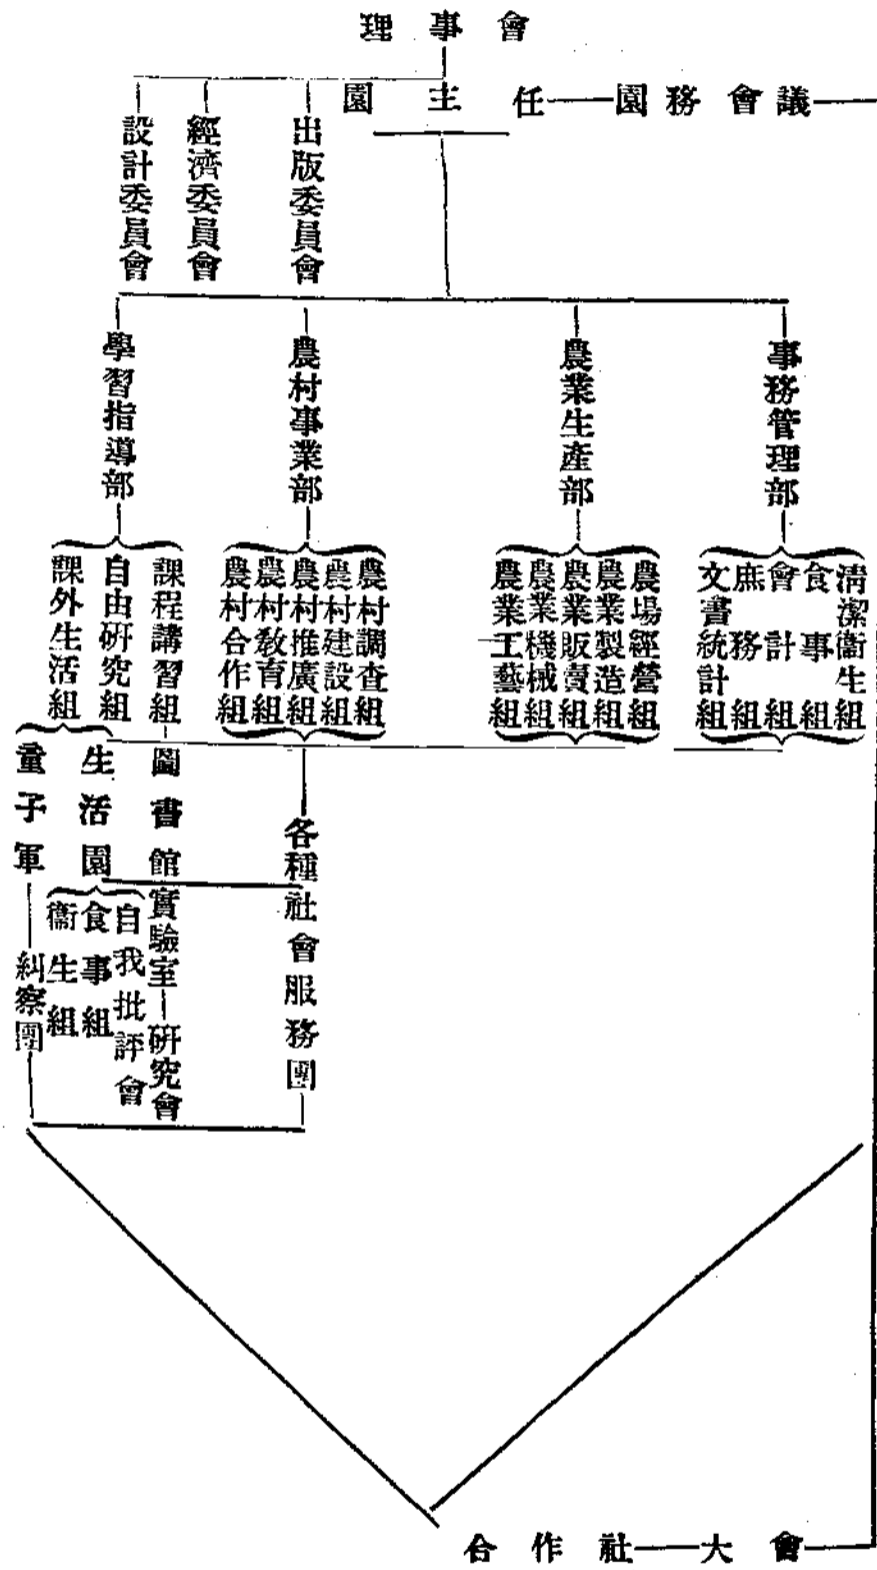 理事會
園主任
園務會議
出版委員會
經濟委員會
設計委員會
事務管理部
農業生產部
農村事業部
學習指導部
清潔衞生組
食事組
會計組
庶務組
文書統計組
農場經營組
農業製造組
農業販賣組
農業機械組
農業工藝組
農村調查組
農村建設組
農村推廣組
農村教育組
農村合作組
課程講習組
自由研究組
課外生活組
圖書館
實驗室
研究會
生活園
童子軍
自我批評會
食事組
衞生組
糾察團
各種社會服務團
合作社
大會